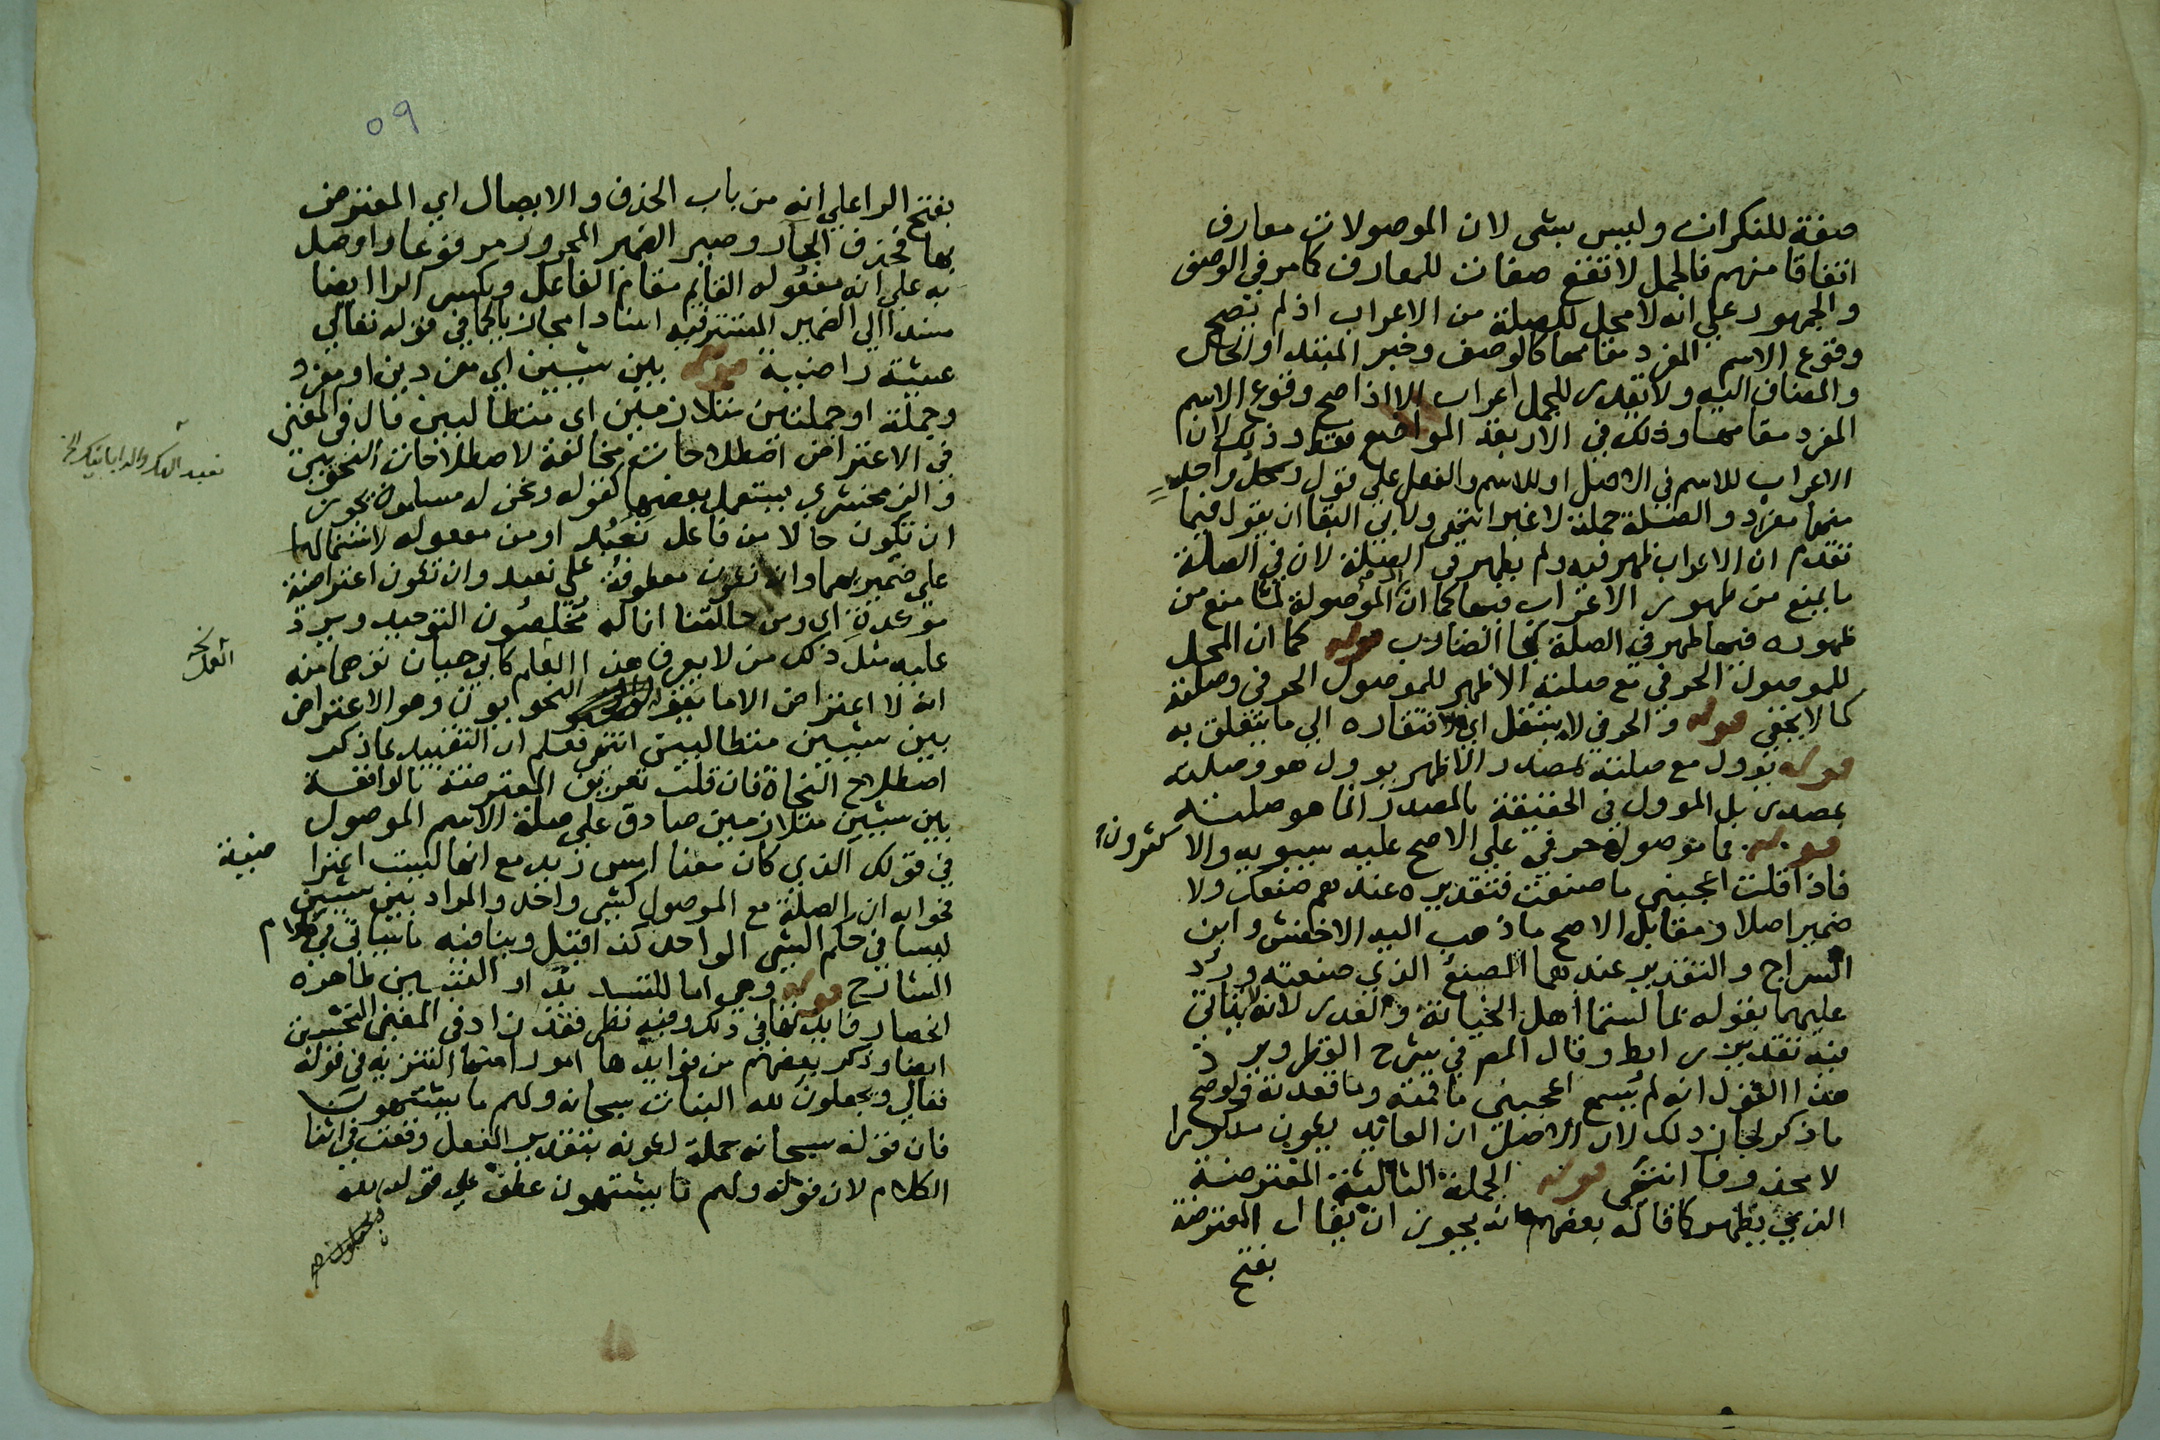 صفة للنكرات وليس بشي لان الموصولات معارف
اتفاقا منهم فالجمل لا تقع صفات للمعارف كما مر في الوصف
والجمهور على انه لا محل للصلة من الاعراب اذ لم تصح
وقوع الاسم المفرد مقامها كالوصف وخبر المبتدا والحال
والمضاف اليه ولا يقدر للجمل اعراب الا اذا صح وقوع الاسم
المفرد مقامها وذلك في الاربعة المواضع فقط وذلك لان
الاعراب للاسم في الاصل او للاسم والفعل على قول وكل واحد
منهما مفرد والصلة جملة لا غير انتهى ولابي البقا ان يقول فيما
تقدم ان الاعراب ظهر فيه ولم يظهر في الصلة لان في الصلة
ما يمنع من ظهور الاعراب فيها كما ان الموصولة لما منع من
ظهوره فيها ظهر في الصلة كجا الضارب قوله كما ان المحل
للموصول الحرفي مع صلته الاظهر للموصول الحرفي وصلته
كما لا يخفى قوله والحرفي لا يستقل اي لافتقاره الى ما يتعلق به
قوله تؤول مع صلته بمصدر الاظهر يوول هو وصلته
بمصدر بل الموول في الحقيقة بالمصدر انما هو صلته
قوله فما موصولة حرفي على الاصح عليه سيبويه والاكثرون
فاذا قلت اعجبني ما صنعت فتقديره عندهم صنعك ولا
ضمير اصلا ومقابل الاصح ما ذهب اليه الاخفش وابن
السراج والتقدير عندهما الصنع الذي صنعته ورد
عليهما بقوله بما لستما اهل الخيانة والغدر لانه لا يتاتى
فيه تقدير رابط وقال المص في شرح القطر ويرد
هذا القول انه لم يسمع اعجبني ما قمته وما قعدته ولو صح
ما ذكر لجاز ذلك لان الاصل ان العائد يكون مذكورا
لا محذوفا انتهى قوله الجملة الثالثة المعترضة
الذي يظهر كما قاله بعضهم انه يجوز ان يقال المعترضة
بفتح
٥٩
بفتح الرا على انه من باب الحذف والايصال اي المعترض
بها فحذف الجار وصير الضمير المجرور مرفوعا واوصل
به على انه مفعوله القايم مقام الفاعل وبكسر الرا ايضا
مسندا الى الضمير المستتر فيه اسنادا مجازيا كما في قوله تعالى
عيشة راضية قوله بين شيئين اي مفردين او مفرد
وجملة او جملتين متلازمين اي متطالبين قال في المغني
في الاعتراض اصطلاحات مخالفة لاصطلاحات النحويين
والزمخشري يستعمل بعضها كقوله ونحن له مسلمون يجوز
ان تكون حالا من فاعل نعبد او من مفعوله لاشتمالها
على ضميريهما وان تكون معطوفة على نعبد وان تكون اعتراضية
موكدة اي ومن حالتنا انا له مخلصون التوحيد ويرد
عليه مثل ذلك من لا يعرف هذا العلم كابي حيان توهما منه
انه لا اعتراض الا ما يقوله النحويون وهو الاعتراض
بين شيئين متطالبين انتهى فعلم ان التقييد بما ذكر
اصطلاح النحاة فان قلت تعريف المعترضة بالواقعة
بين شيئين متلازمين صادق على صلة الاسم الموصول
في قولك الذي كان معنا امس زيد مع انها ليست اعترا
ضية
فجوابه ان الصلة مع الموصول كشي واحد والمراد بين شيئين
ليسا في حكم الشي الواحد كذا قيل وينافيه ما سياتي في كلام
الشارح قوله وهي اما للتسديد او التبيين ظاهره
انحصار فايدتها في ذلك وفيه نظر فقد زاد في المغني التحسين
ايضا وذكر بعضهم من فوايدها امورا منها التنزيه في قوله
تعالى ويجعلون لله البنات سبحانه ولهم ما يشتهون
فان قوله سبحانه جملة لكونه بتقدير الفعل وقعت في اثنا
الكلام لان قوله ولهم ما يشتهون عطف على قوله لله